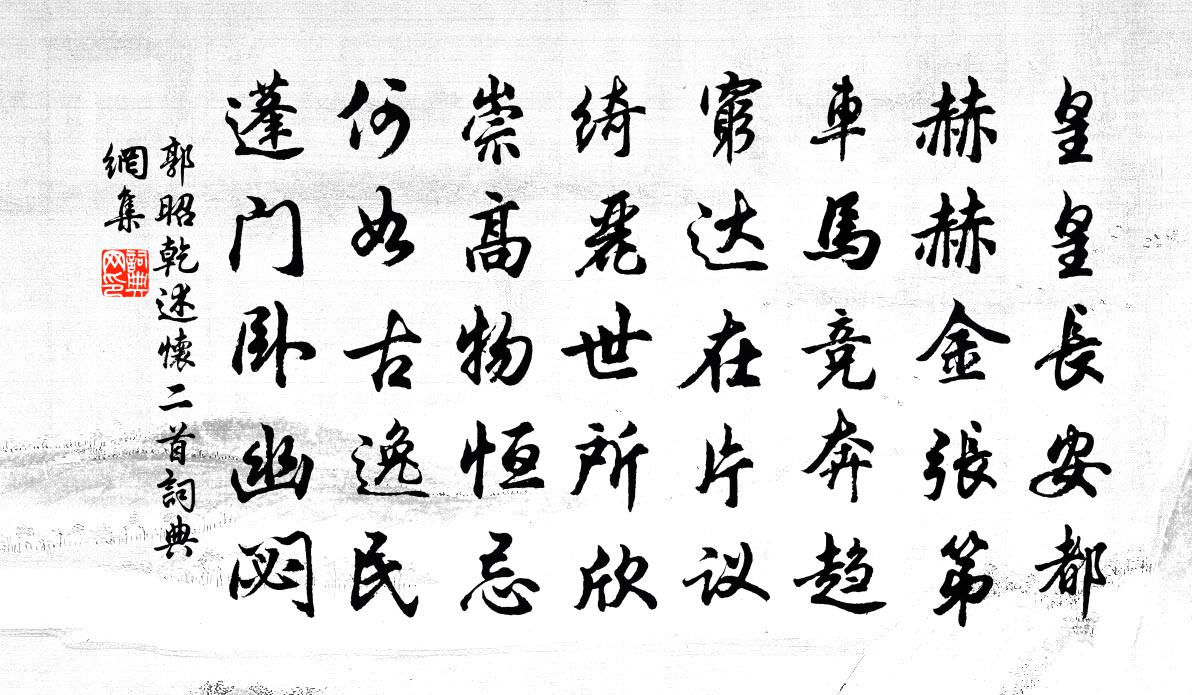 皇皇長安都
赫赫金張第
車馬竞奔趋
窮达在片议
绮麗世所欣
崇高物恒忌
何如古逸民
蓬门卧幽闷
郭昭乾述懷二首詞典
網集
詞典网印